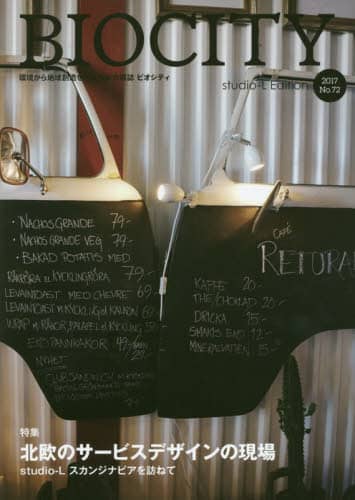 BIOCITY
環境から地球創造を
雑誌 ビオシティ
studio-L Edition
2017
No.72
• NACHOS GRANDE 79-
• NACHOS GRANDE VEG 79-
• BAKAD POTATIS MED
RÄKRÖRA el KYCKLINGRÖRA 79-
LEVAINTOAST MED CHEVRE 69-
LEVAINTOAST m KYCKLING el KALKON 69-
WRAP m RÄKOR, FALAFEL el KYCKLING 59-
EKO PANNKAKOR 49-
29-
NYHET
CLUB SANDWICH
CAFÉ
RETURA
KAFFE 20-
THÉ/CHOKLAD 20-
DRICKA 15-
SMAKIS EKO 12-
MINERALVATTEN 15-
特集
北欧のサービスデザインの現場
studio-L スカンジナビアを訪ねて